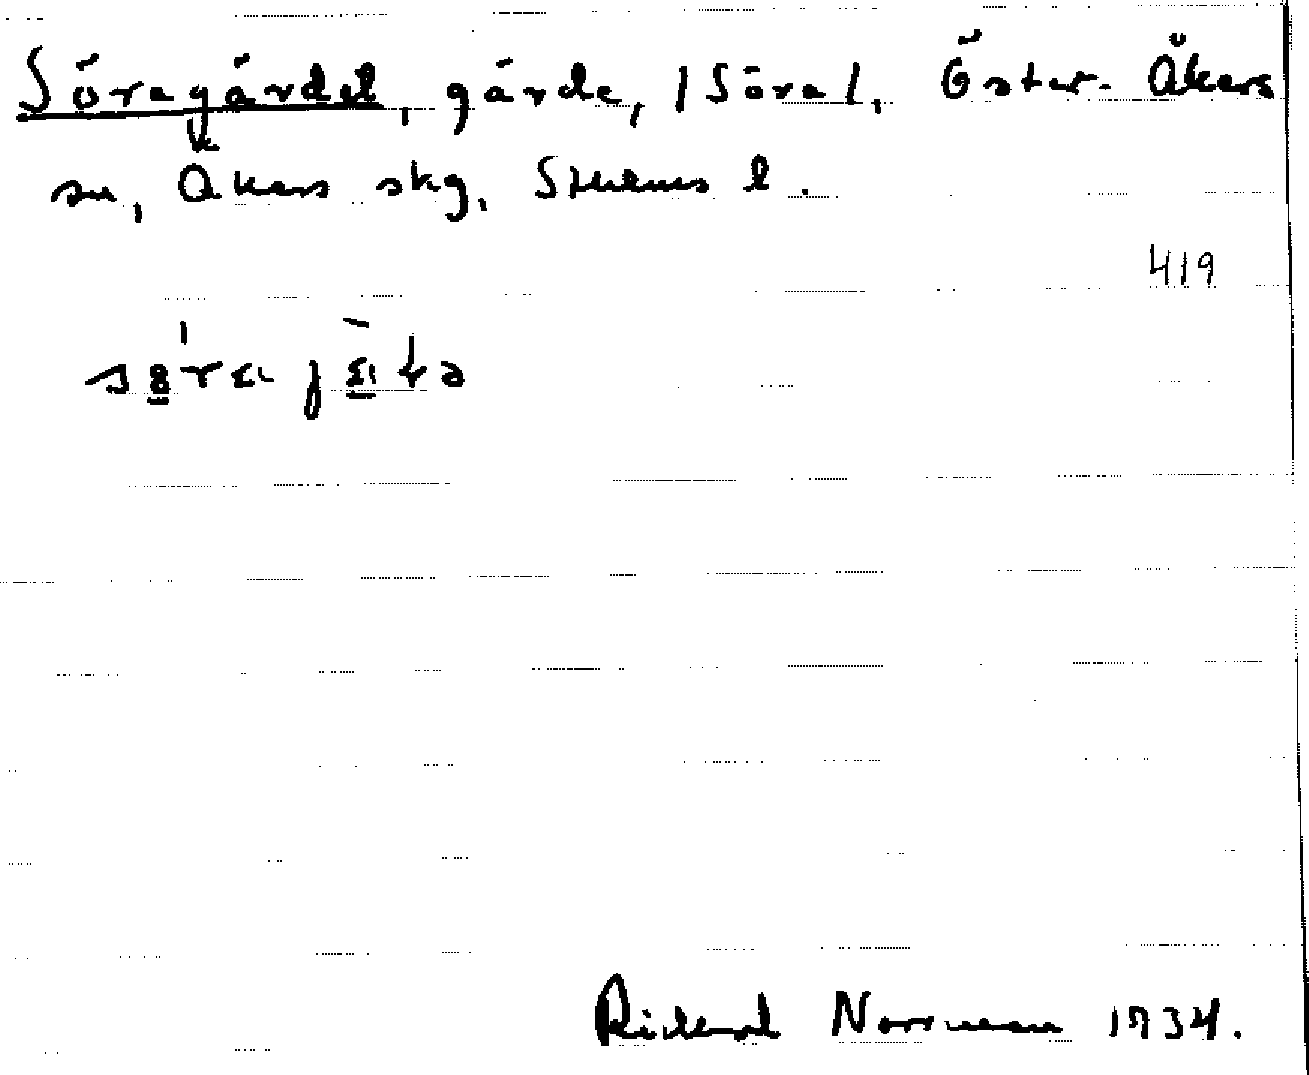 Söragärdet, gärde, /Söra/, Öster-Åkers
sn, Åkers skg, Sthlms l.
419
Rickard Norrman 1934.